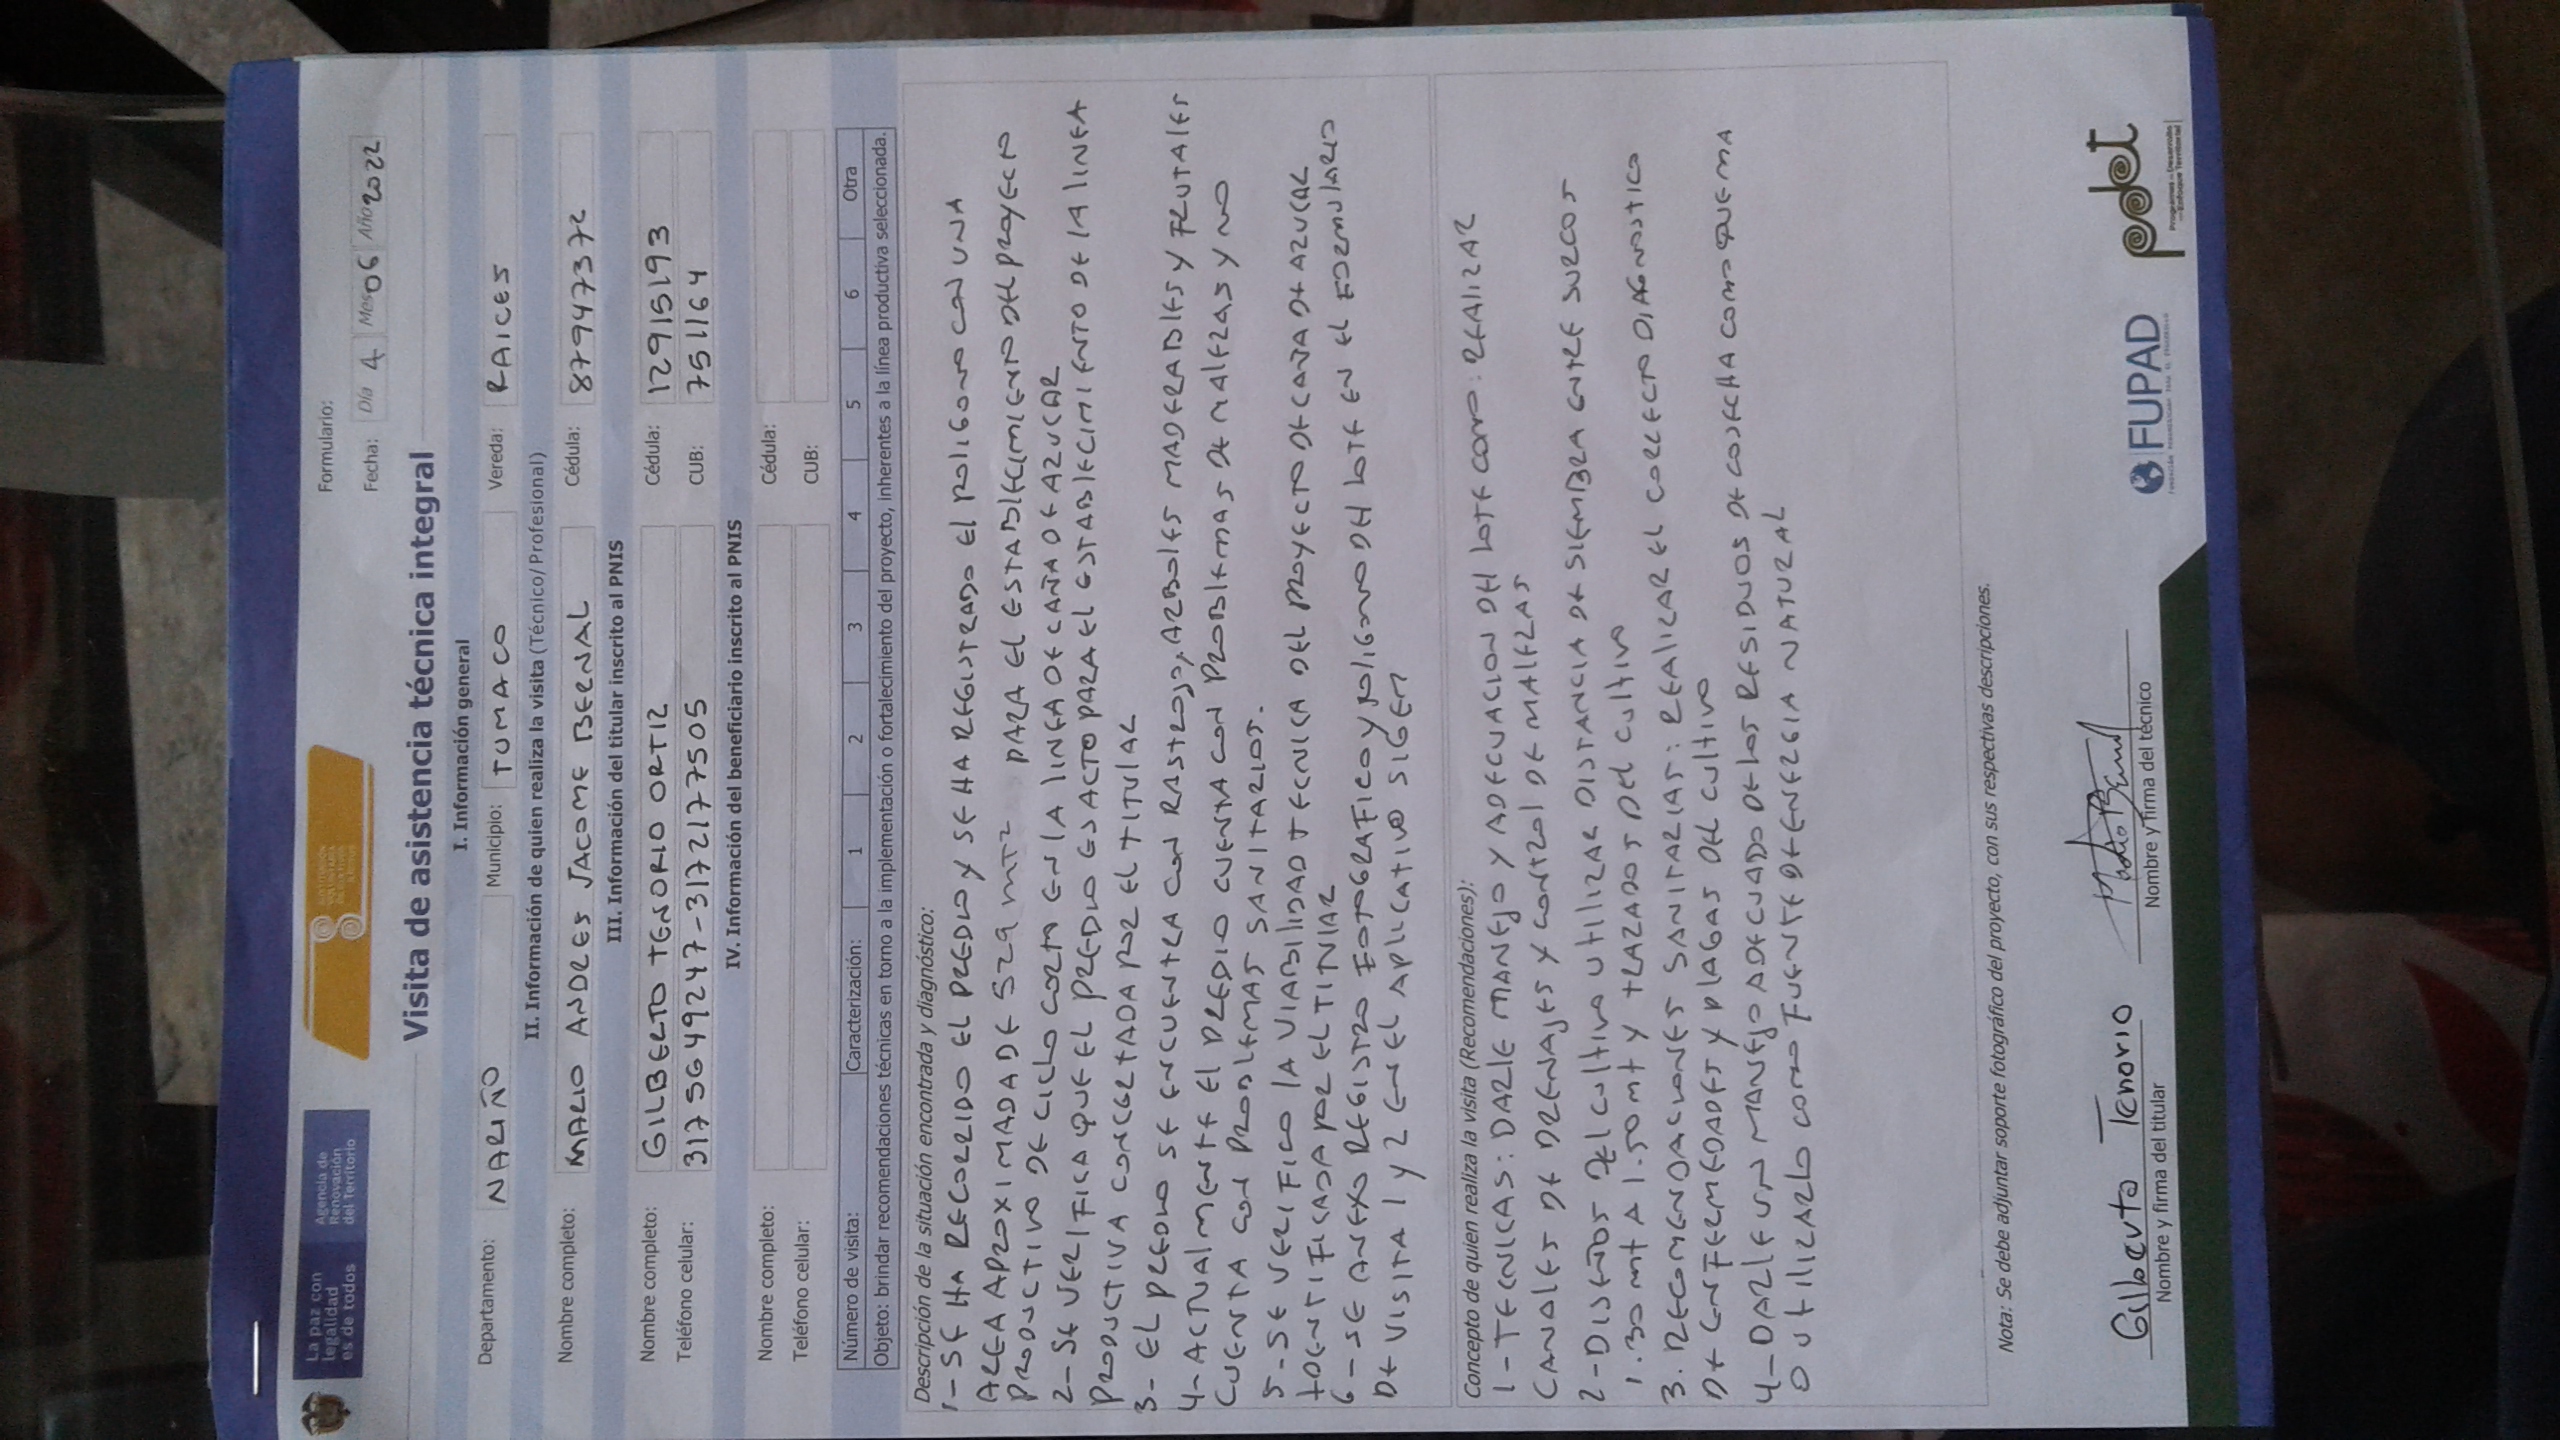 La paz con
legalidad
es de todos
Agencia de
Renovación
del Territorio
Formulario:
Fecha: Día 4 Mes 06 Año 2022
Visita de asistencia técnica integral
I. Información general
Departamento: NARIÑO Municipio: TUMACO Vereda: RAICES
II. Información de quien realiza la visita (Técnico/Profesional)
Nombre completo: MARIO ANDRES JACOME BERNAL Cédula: 879477372
III. Información del titular inscrito al PNIS
Nombre completo: GILBERTO TENORIO ORTIZ Cédula: 12915193
Teléfono celular: 3175649247-3172177505 CUB: 751164
IV. Información del beneficiario inscrito al PNIS
Nombre completo: Cédula:
Teléfono celular: CUB:
Número de visita: Caracterización: 1 2 3 4 5 6 Otra
Objeto: brindar recomendaciones técnicas en torno a la implementación o fortalecimiento del proyecto, inherentes a la línea productiva seleccionada.
Descripción de la situación encontrada y diagnóstico:
1- SE HA RECORRIDO EL PREDIO Y SE HA REGISTRADO EL POLIGONO CON UNA
AREA APROXIMADA DE 529 mt2 PARA EL ESTABLECIMIENTO DEL PROYECTO
PRODUCTIVO DE CICLO CORTO EN LA LINEA DE CAÑA DE AZUCAR
2- SE VERIFICA QUE EL PREDIO ES ACTO PARA EL ESTABLECIMIENTO DE LA LINEA
PRODUCTIVA CONCERTADA POR EL TITULAR
3- EL PREDIO SE ENCUENTRA CON RASTROJO, ARBOLES MADERABLES Y FRUTALES
4- ACTUALMENTE EL PREDIO CUENTA CON PROBLEMAS DE MALEZAS Y NO
CUENTA CON PROBLEMAS SANITARIOS.
5- SE VERIFICO LA VIABILIDAD TECNICA DEL PROYECTO DE CAÑA DE AZUCAR
IDENTIFICADA POR EL TINIAR
6- SE ANEXO REGISTRO FOTOGRAFICO Y POLIGONO DEL LOTE EN EL FORMULARIO
DE VISITA 1 Y 2 EN EL APLICATIVO SIGEN
Concepto de quien realiza la visita (Recomendaciones):
1- TECNICAS: DARLE MANEJO Y ADECUACION DEL LOTE COMO: REALIZAR
CANALES DE DRENAJES Y CONTROL DE MALEZAS
2- DISEÑOS DEL CULTIVO UTILIZAR DISTANCIA DE SIEMBRA ENTRE SURCOS
1.30 mt A 1.50 mt Y TRAZADOS DEL CULTIVO
3. RECOMENDACIONES SANITARIAS: REALIZAR EL CORRECTO DIAGNOSTICO
DE ENFERMEDADES Y PLAGAS DEL CULTIVO
4- DARLE UN MANEJO ADECUADO DE LOS RESIDUOS DE COSECHA COMO QUEMA
O UTILIZARLO COMO FUENTE DE ENERGIA NATURAL
Nota: Se debe adjuntar soporte fotográfico del proyecto, con sus respectivas descripciones.
Gilberto Tenorio
Nombre y firma del titular
Nombre y firma del técnico
FUPAD
pdet